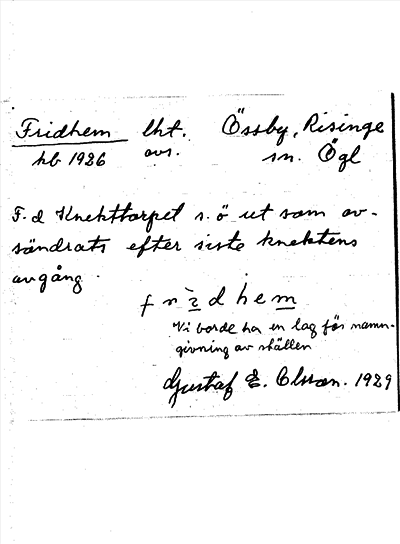 Fridhem lht. Össby, Risinge
hb 1926 avs. sn. Ögl
F. d Knekttorpet s. ö ut som av-
söndrats efter siste knektens
avgång.
frìdhem
Vi borde ha en lag för namn-
givning av ställen
Gustaf E. Olsson. 1929